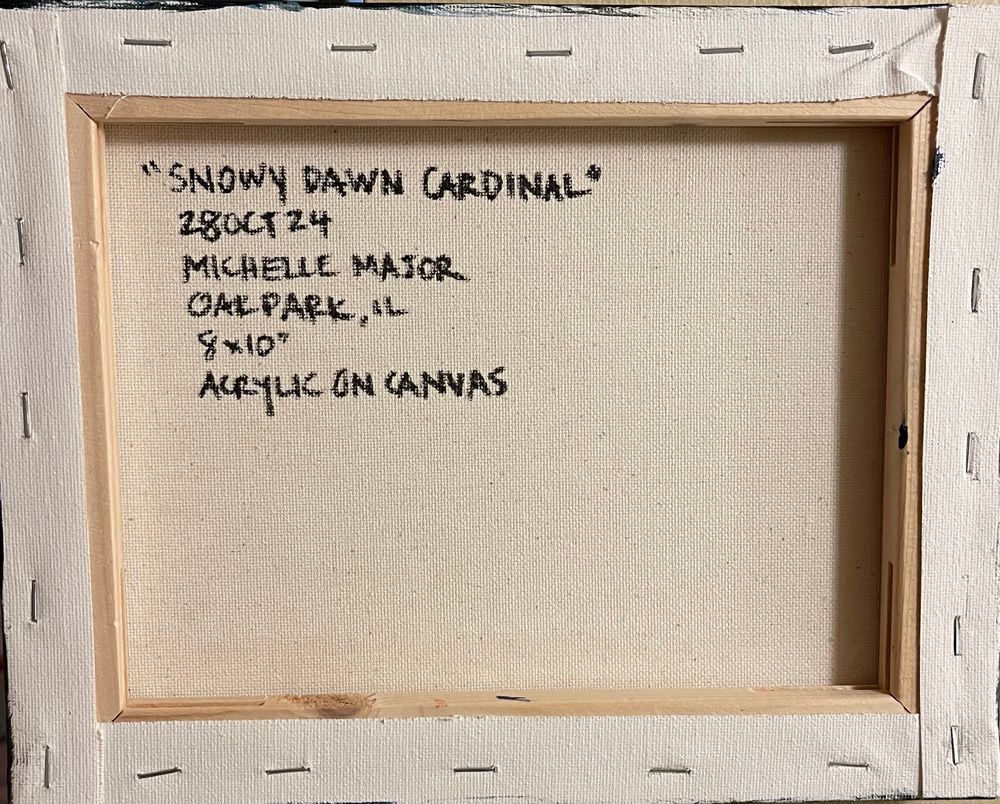 "SNOWY DAWN CARDINAL"
28 OCT 24
MICHELLE MAJOR
OAK PARK, IL
8x10"
ACRYLIC ON CANVAS